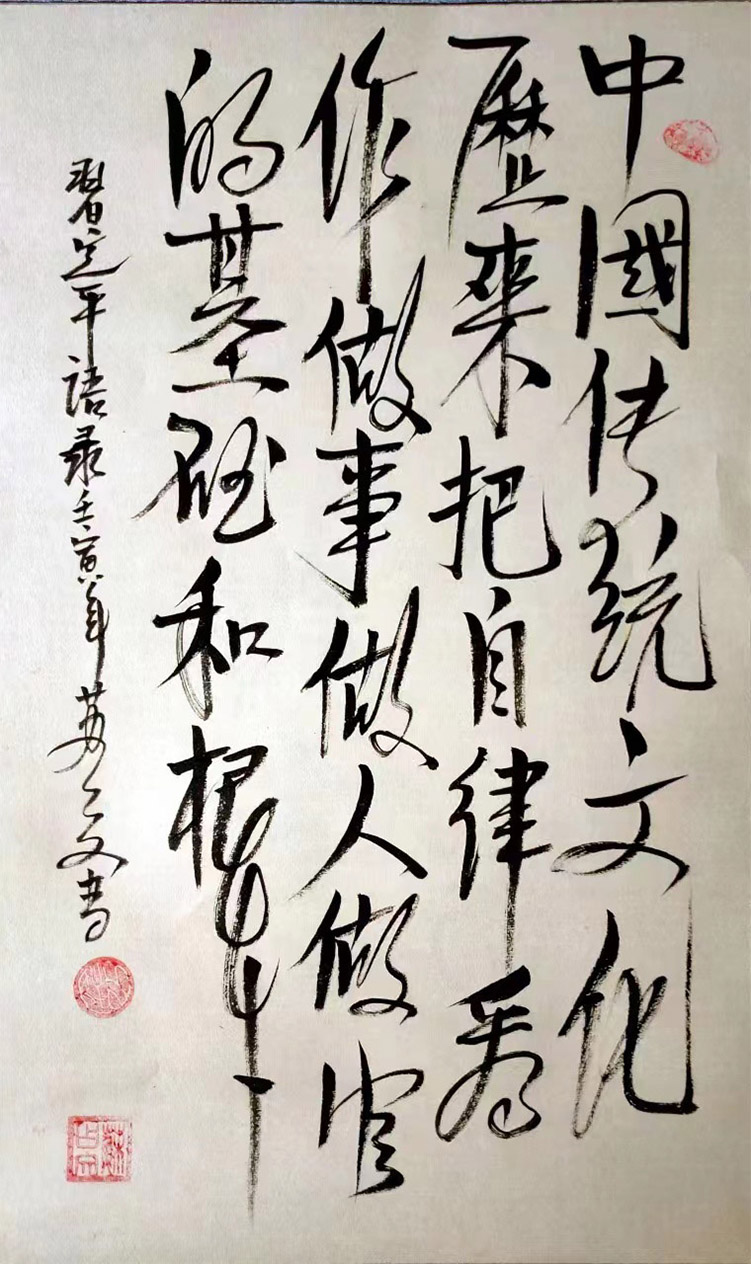 中國传统文化
歷來把自律看
作做事做人做官
的基础和根本
習近平語录壬寅年苏文书